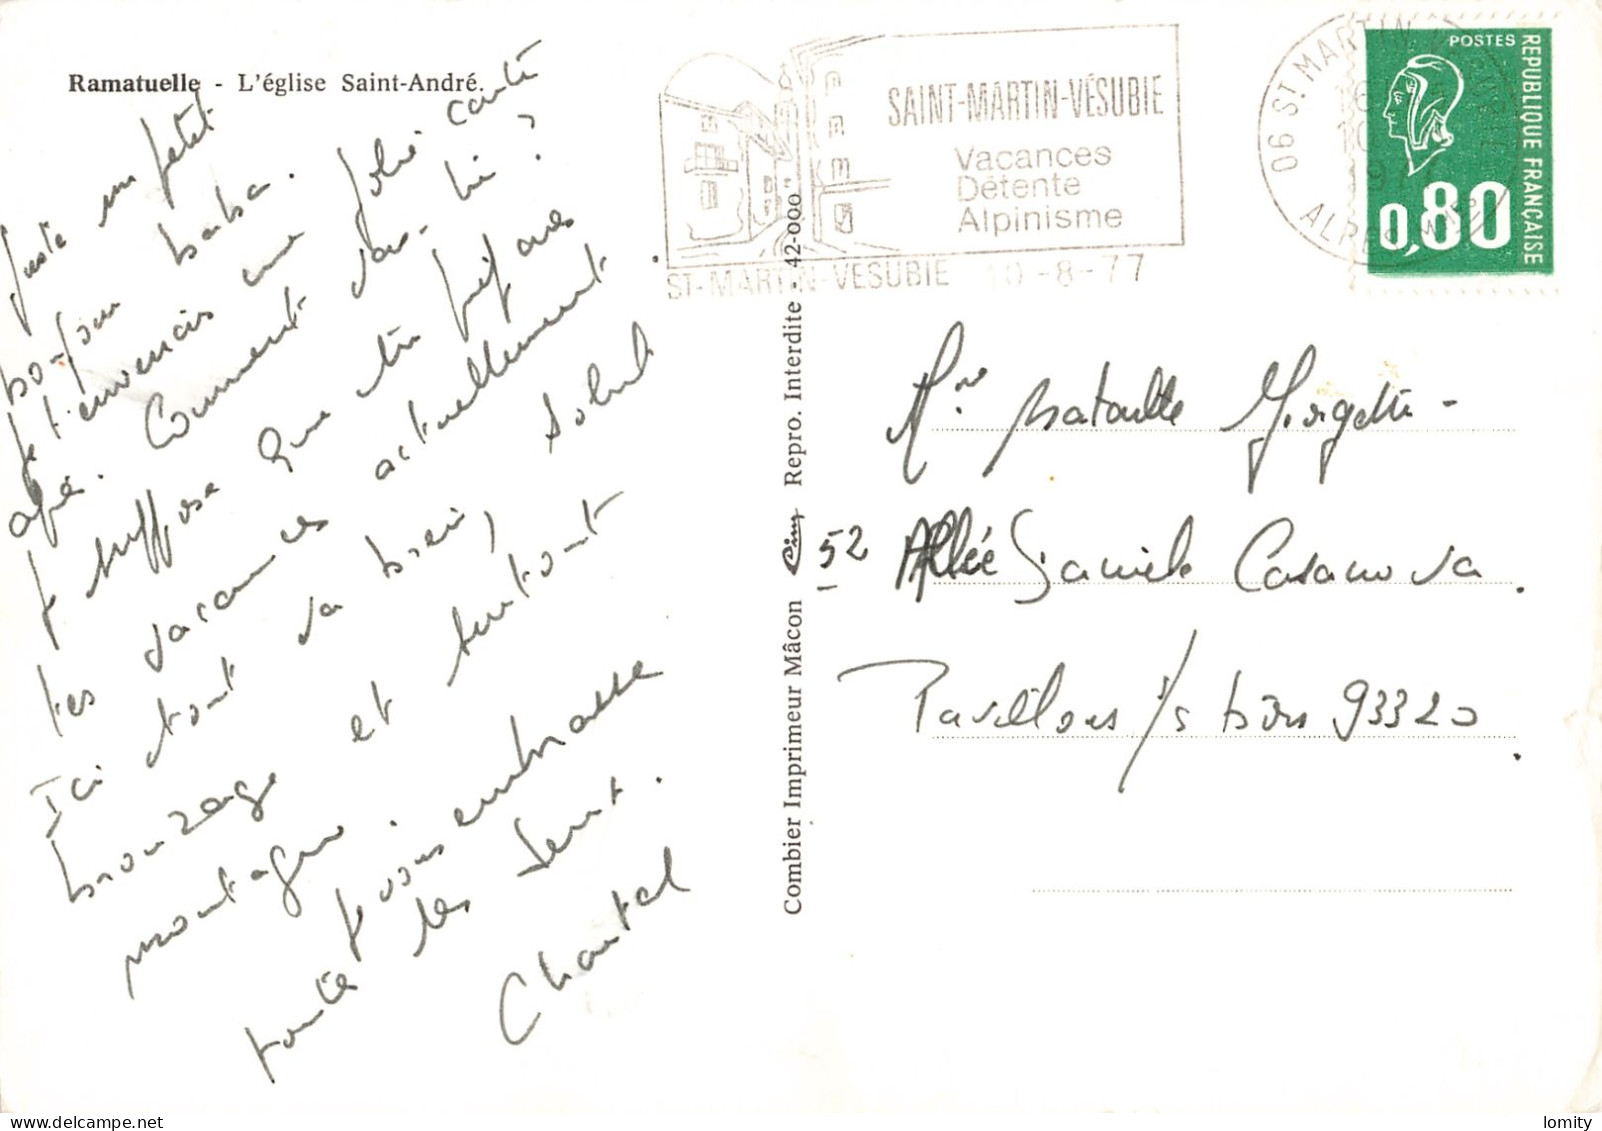 Ramatuelle - L'église Saint-André.
Juste un petit
bonjour baba.
Je t'envoiais une jolie carte
apé. Comment vas-tu ?
Je suppose que tu prépares
tes vacances actuellement
Ici tout va bien, soleil
bronzage et surtout
montagne.
Je vous embrasse
toute les deux.
Chantal
Combier Imprimeur Mâcon Cim Repro. Interdite - 42-000
SAINT-MARTIN-VÉSUBIE
Vacances
Détente
Alpinisme
ST-MARTIN-VESUBIE 10-8-77
06 ST. MARTIN VESUBIE
ALPES
POSTES
REPUBLIQUE FRANÇAISE
0,80
Mme Nataulte Giorgetti -
52 Allée Daniele Casanova.
Pavillons s/s bois 93320.
lomity